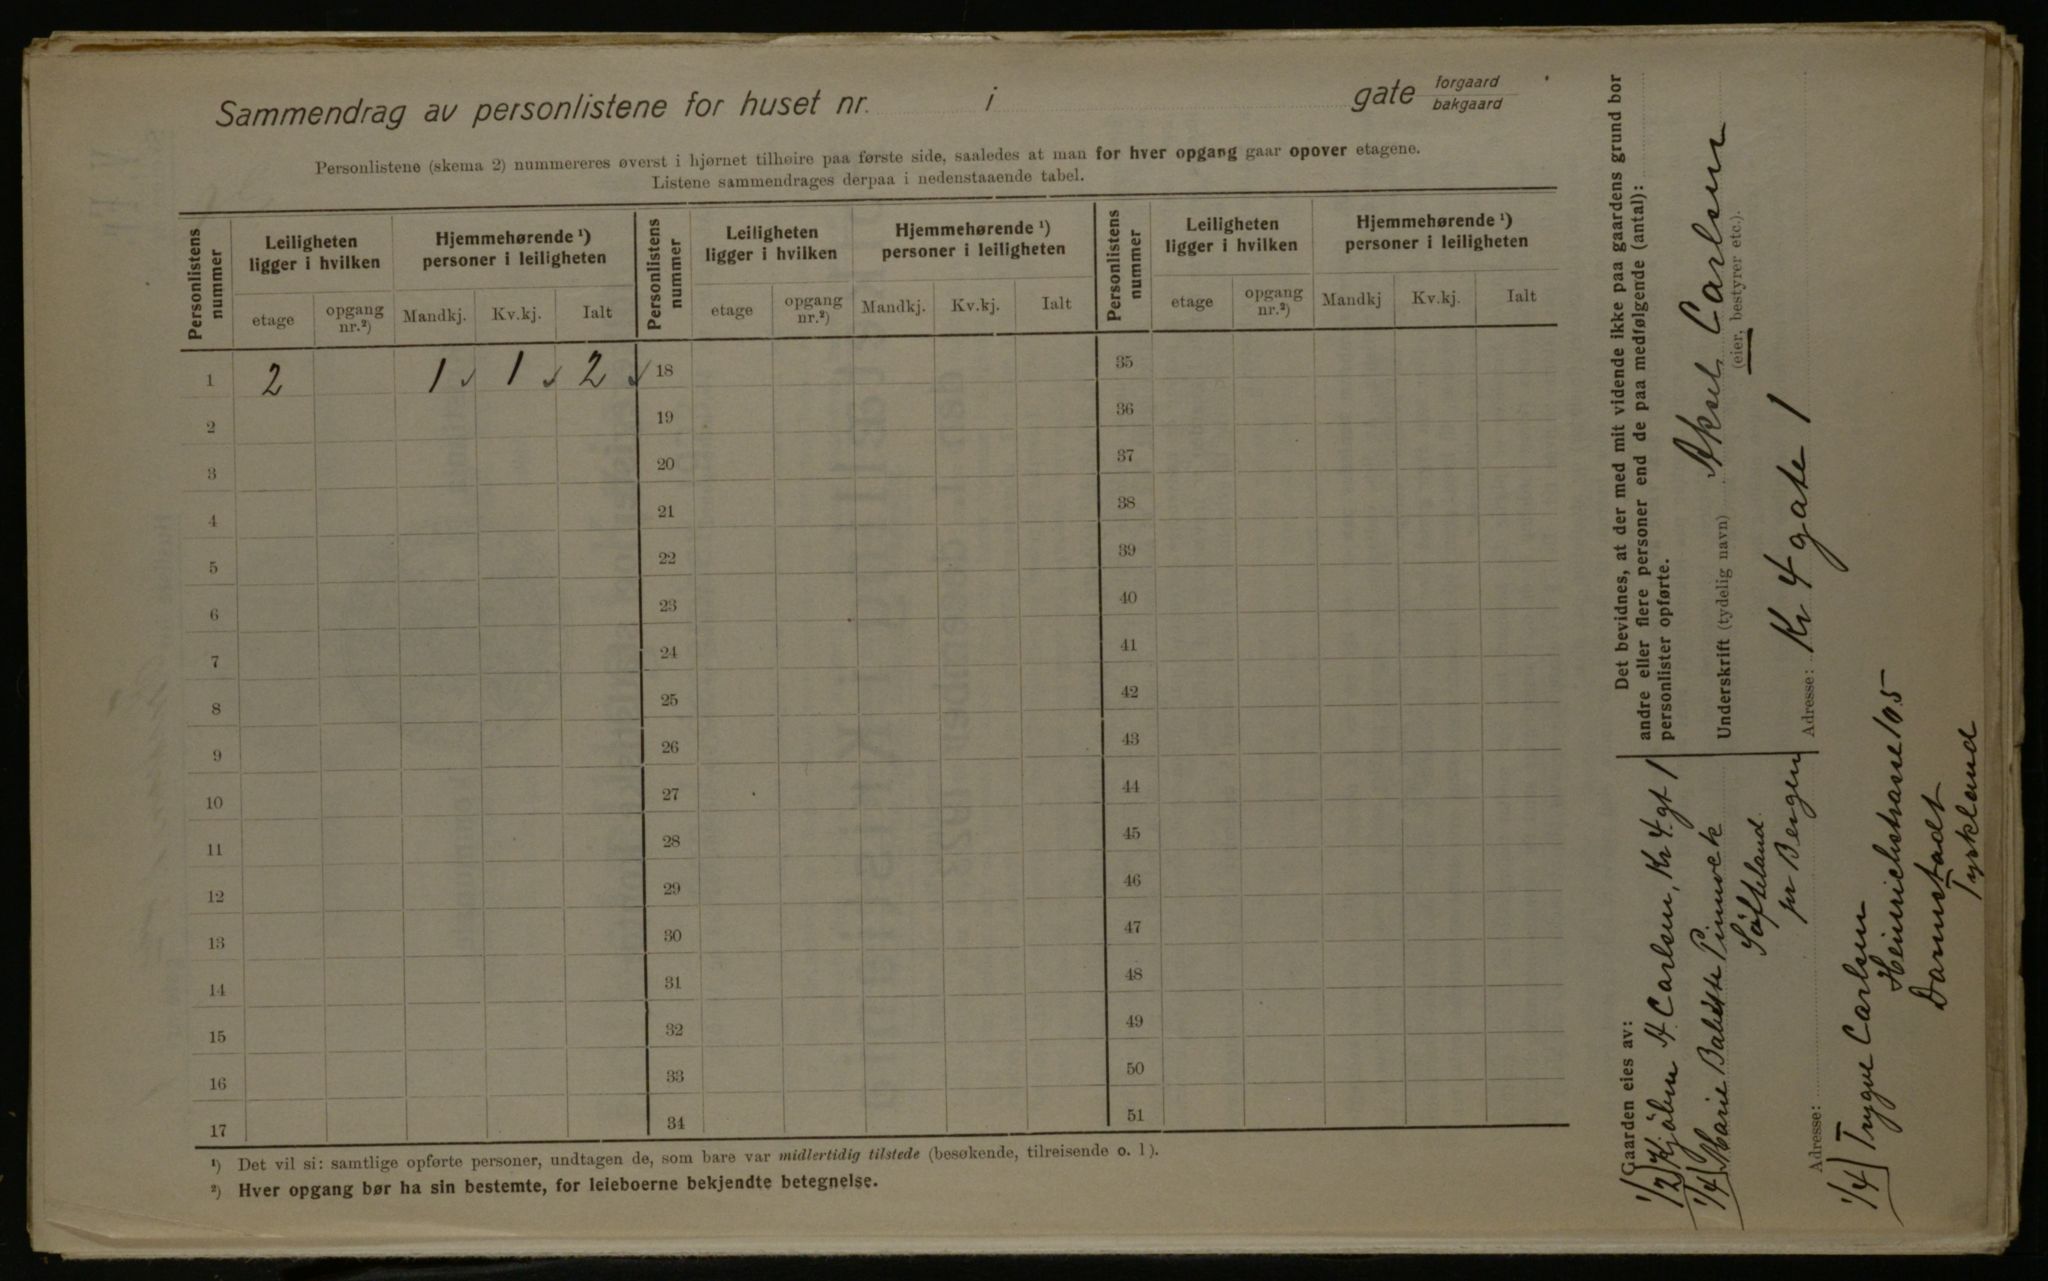 Sammendrag av personlistene for huset nr. i gate forgaard
bakgaard
Personlistene (skema 2) nummereres øverst i hjørnet tilhøire paa første side, saaledes at man for hver opgang gaar opover etagene.
Listene sammendrages derpaa i nedenstaaende tabel.
Personlistens nummer
Leiligheten ligger i hvilken
Hjemmehørende ¹) personer i leiligheten
Personlistens nummer
Leiligheten ligger i hvilken
Hjemmehørende ¹) personer i leiligheten
Personlistens nummer
Leiligheten ligger i hvilken
Hjemmehørende ¹) personer i leiligheten
etage opgang nr.²) Mandkj. Kv.kj. Ialt etage opgang nr.²) Mandkj. Kv.kj. Ialt etage opgang nr.²) Mandkj Kv.kj. Ialt
1 2 1 1 2 18 35
2 19 36
3 20 37
4 21 38
5 22 39
6 23 40
7 24 41
8 25 42
9 26 43
10 27 44
11 28 45
12 29 46
13 30 47
14 31 48
15 32 49
16 33 50
17 34 51
¹) Det vil si: samtlige opførte personer, undtagen de, som bare var midlertidig tilstede (besøkende, tilreisende o. l).
²) Hver opgang bør ha sin bestemte, for leieboerne bekjendte betegnelse.
Det bevidnes, at der med mit vidende ikke paa gaardens grund bor
andre eller flere personer end de paa medfølgende (antal):
personlister opførte.
Underskrift (tydelig navn) Aksel Carlsen
(eier, bestyrer etc.).
Adresse: Kr 4 gate 1
Gaarden eies av:
1/2 A Carlsen, Kr 4. gt 1
1/4 Marie
pr Bergen
Adresse:
1/4 Trygve Carlsen
Heinrichstrasse 105
Darmstadt
Tyskland